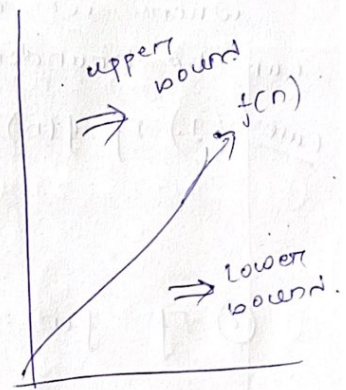 upper
bound
f(n)
lower
bound.